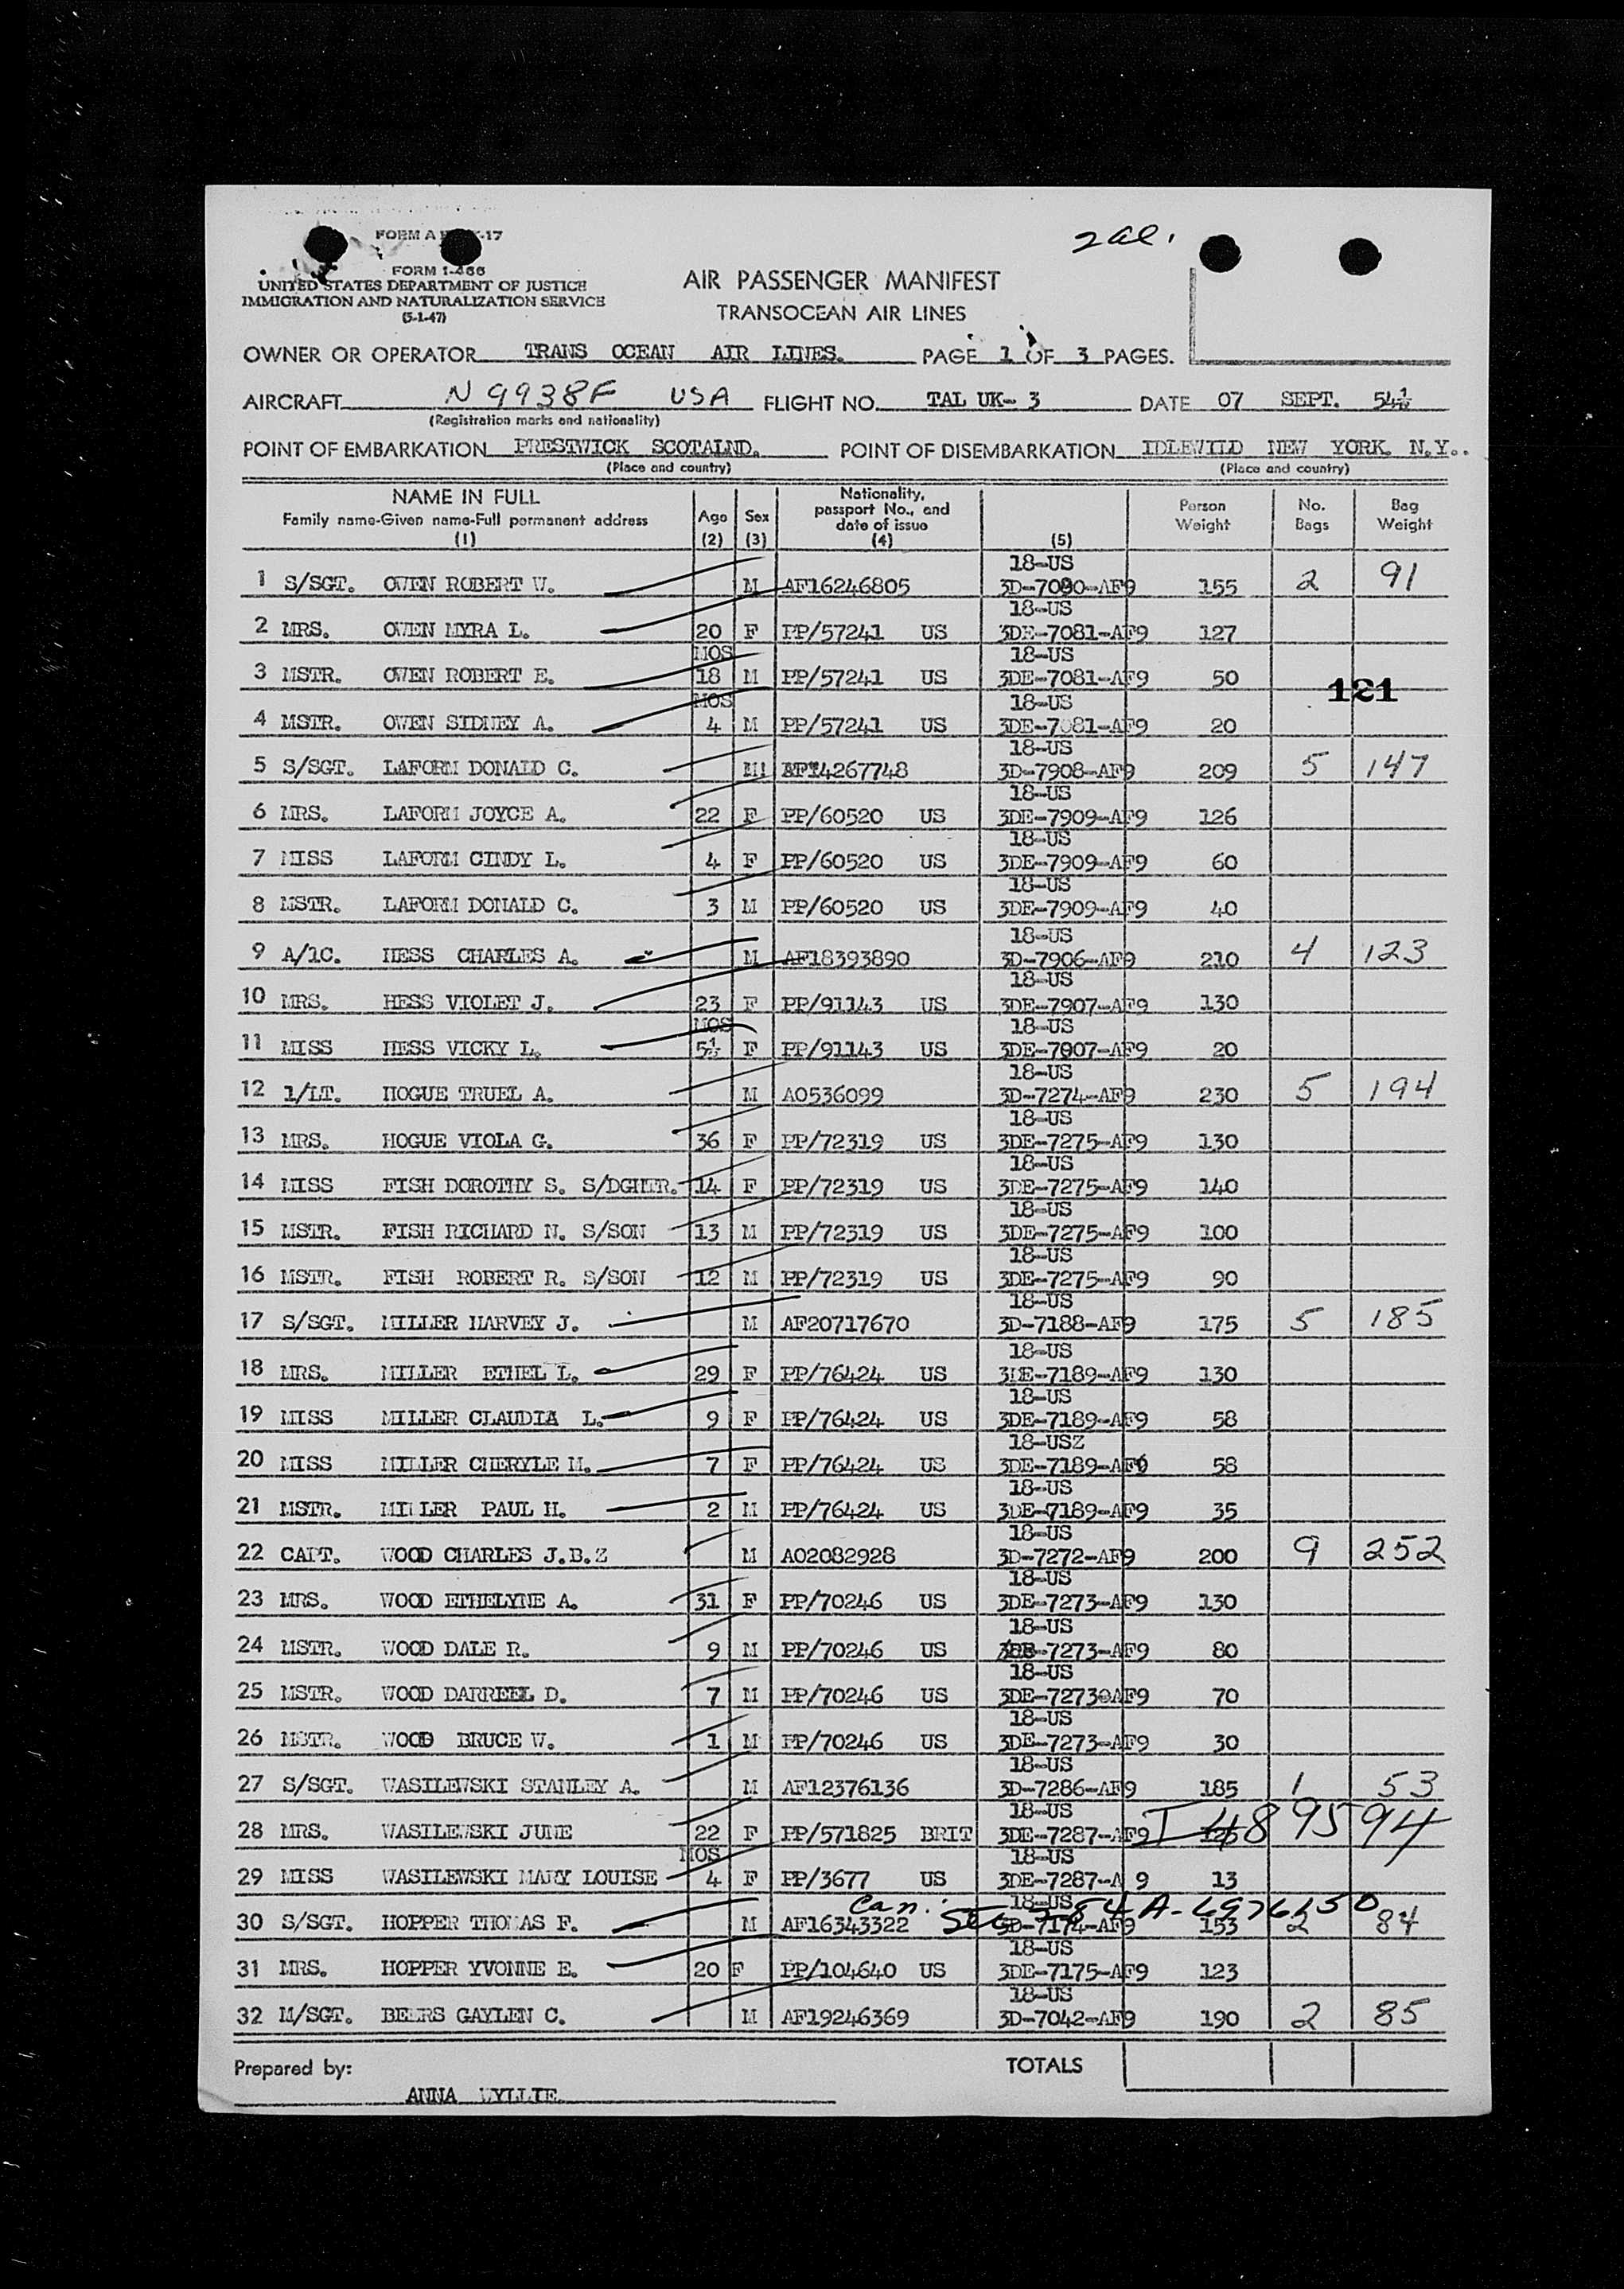 FORM A
-17
2al.
FORM I-466
UNITED STATES DEPARTMENT OF JUSTICE
IMMIGRATION AND NATURALIZATION SERVICE
(5-1-47)
AIR PASSENGER MANIFEST
TRANSOCEAN AIR LINES
OWNER OR OPERATOR TRANS OCEAN AIR LINES. PAGE 1 OF 3 PAGES.
AIRCRAFT N9938F USA FLIGHT NO. TAL UK- 3 DATE 07 SEPT. 54
(Registration marks and nationality)
POINT OF EMBARKATION PRESTWICK SCOTALND. POINT OF DISEMBARKATION IDLEWILD NEW YORK. N.Y..
(Place and country) (Place and country)
NAME IN FULL Family name-Given name-Full permanent address (1) Age (2) Sex (3) Nationality, passport No., and date of issue (4) (5) Person Weight No. Bags Bag Weight
18-US
1 S/SGT. OWEN ROBERT W. M AF16246805 3D-7080-AF9 155 2 91
18-US
2 MRS. OWEN MYRA L. 20 F PP/57241 US 3DE-7081-AF9 127
MOS 18-US
3 MSTR. OWEN ROBERT E. 18 M PP/57241 US 3DE-7081-AF9 50
121
MOS 18-US
4 MSTR. OWEN SIDNEY A. 4 M PP/57241 US 3DE-7081-AF9 20
18-US
5 S/SGT. LAFORM DONALD C. M AF14267748 3D-7908-AF9 209 5 147
18-US
6 MRS. LAFORM JOYCE A. 22 F PP/60520 US 3DE-7909-AF9 126
18-US
7 MISS LAFORM CINDY L. 4 F PP/60520 US 3DE-7909-AF9 60
18-US
8 MSTR. LAFORM DONALD C. 3 M PP/60520 US 3DE-7909-AF9 40
18-US
9 A/1C. HESS CHARLES A. M AF18393890 3D-7906-AF9 210 4 123
18-US
10 MRS. HESS VIOLET J. 23 F PP/91143 US 3DE-7907-AF9 130
MOS 18-US
11 MISS HESS VICKY L. 5½ F PP/91143 US 3DE-7907-AF9 20
18-US
12 1/LT. HOGUE TRUEL A. M AO536099 3D-7274-AF9 230 5 194
18-US
13 MRS. HOGUE VIOLA G. 36 F PP/72319 US 3DE-7275-AF9 130
18-US
14 MISS FISH DOROTHY S. S/DGHTR. 14 F PP/72319 US 3DE-7275-AF9 140
18-US
15 MSTR. FISH RICHARD N. S/SON 13 M PP/72319 US 3DE-7275-AF9 100
18-US
16 MSTR. FISH ROBERT R. S/SON 12 M PP/72319 US 3DE-7275-AF9 90
18-US
17 S/SGT. MILLER HARVEY J. M AF20717670 3D-7188-AF9 175 5 185
18-US
18 MRS. MILLER ETHEL L. 29 F PP/76424 US 3DE-7189-AF9 130
18-US
19 MISS MILLER CLAUDIA L. 9 F PP/76424 US 3DE-7189-AF9 58
18-USZ
20 MISS MILLER CHERYLE M. 7 F PP/76424 US 3DE-7189-AF9 58
18-US
21 MSTR. MILLER PAUL H. 2 M PP/76424 US 3DE-7189-AF9 35
18-US
22 CAPT. WOOD CHARLES J.B.Z M AO2082928 3D-7272-AF9 200 9 252
18-US
23 MRS. WOOD ETHELYNE A. 31 F PP/70246 US 3DE-7273-AF9 130
18-US
24 MSTR. WOOD DALE R. 9 M PP/70246 US 3DE-7273-AF9 80
18-US
25 MSTR. WOOD DARREEL D. 7 M PP/70246 US 3DE-7273@AF9 70
18-US
26 MSTR. WOOD BRUCE W. 1 M PP/70246 US 3DE-7273-AF9 30
18-US
27 S/SGT. WASILEWSKI STANLEY A. M AF12376136 3D-7286-AF9 185 1 53
18-US
28 MRS. WASILEWSKI JUNE 22 F PP/571825 BRIT 3DE-7287-AF9 125 I489594
MOS 18-US
29 MISS WASILEWSKI MARY LOUISE 4 F PP/3677 US 3DE-7287-A 9 13
Can. 18-US
30 S/SGT. HOPPER THOMAS F. M AF16343322 3D-7174-AF9 153 2 84
18-US
31 MRS. HOPPER YVONNE E. 20 F PP/104640 US 3DE-7175-AF9 123
18-US
32 M/SGT. BEERS GAYLEN C. M AF19246369 3D-7042-AF9 190 2 85
Prepared by: TOTALS
ANNA WYLLIE